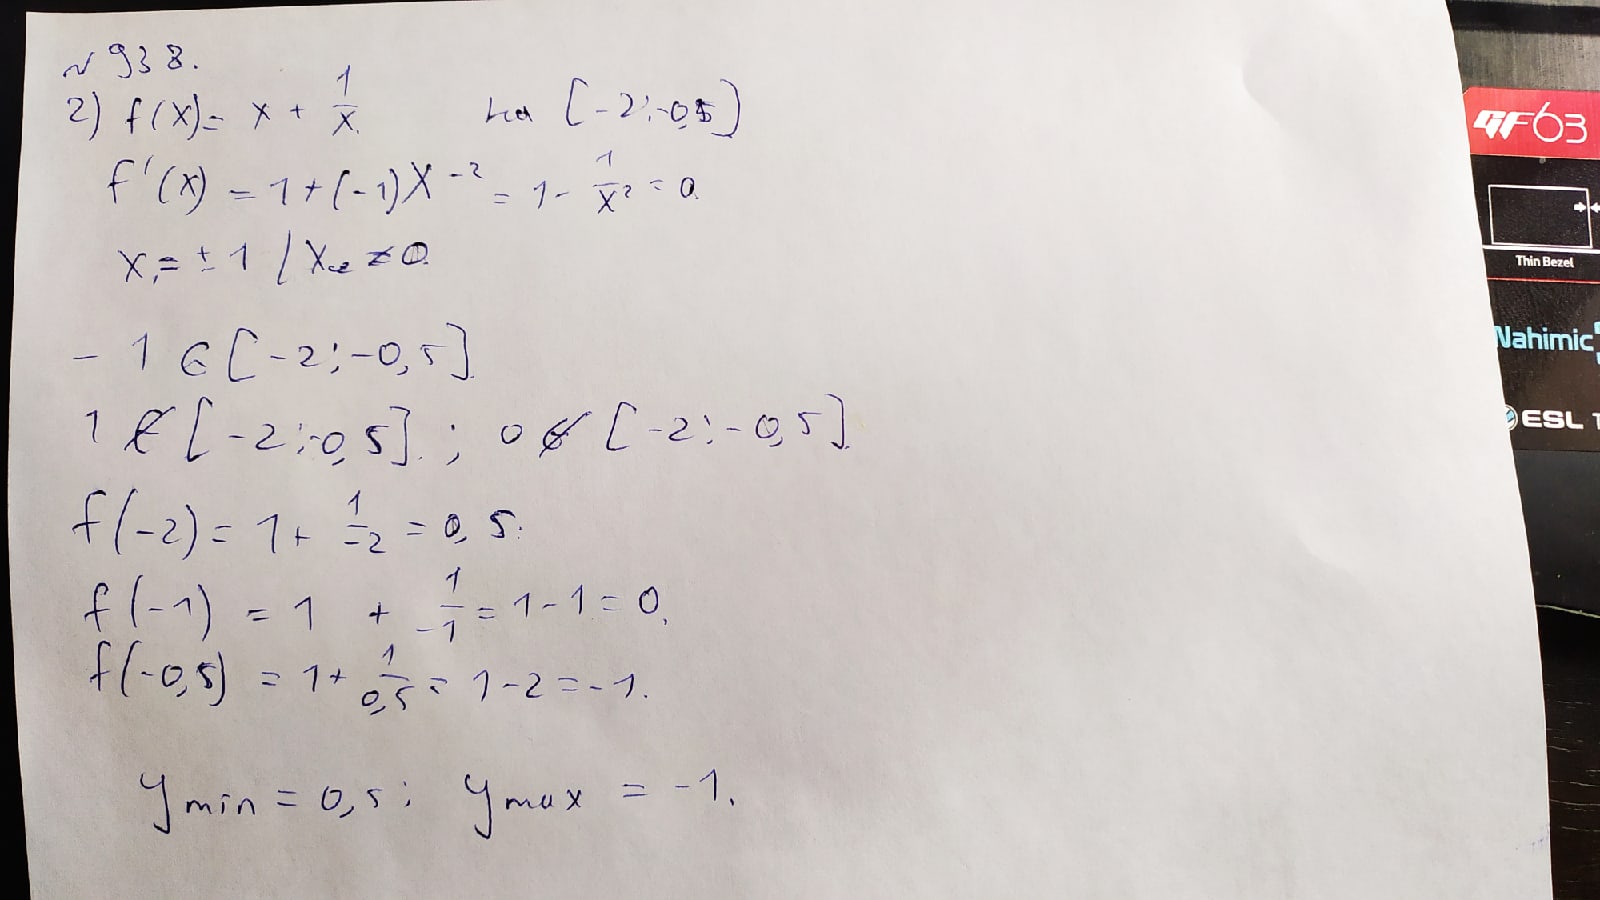 № 938.
2) f(x) = x + 1/x на [-2; -0,5]
f'(x) = 1 + (-1)x⁻² = 1 - 1/x² = 0
x₁ = ± 1 / x₂ ≠ 0
- 1 ∈ [-2; -0,5]
1 ∉ [-2; -0,5]; 0 ∉ [-2; -0,5]
f(-2) = 1 + 1/-2 = 0,5.
f(-1) = 1 + 1/-1 = 1 - 1 = 0.
f(-0,5) = 1 + 1/0,5 = 1 - 2 = -1.
y min = 0,5; y max = -1.
GF63
Thin Bezel
Nahimic
ESL